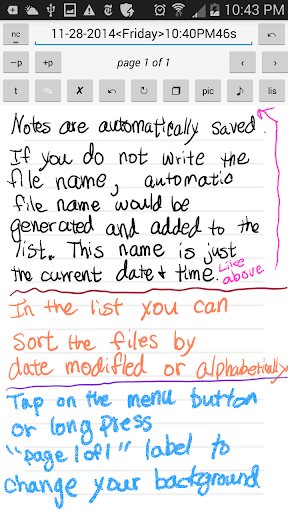 10:43 PM
nc 11-28-2014<Friday>10:40PM46s
-p +p page 1 of 1 < >
t x pic lis
Notes are automatically saved.
If you do not write the
file name, automatic
file name would be
generated and added to the
list. This name is just
the current date + time. Like
above
In the list you can
sort the files by
date modified or alphabetically
Tap on the menu button
or long press
"page 1 of 1" label to
change your background